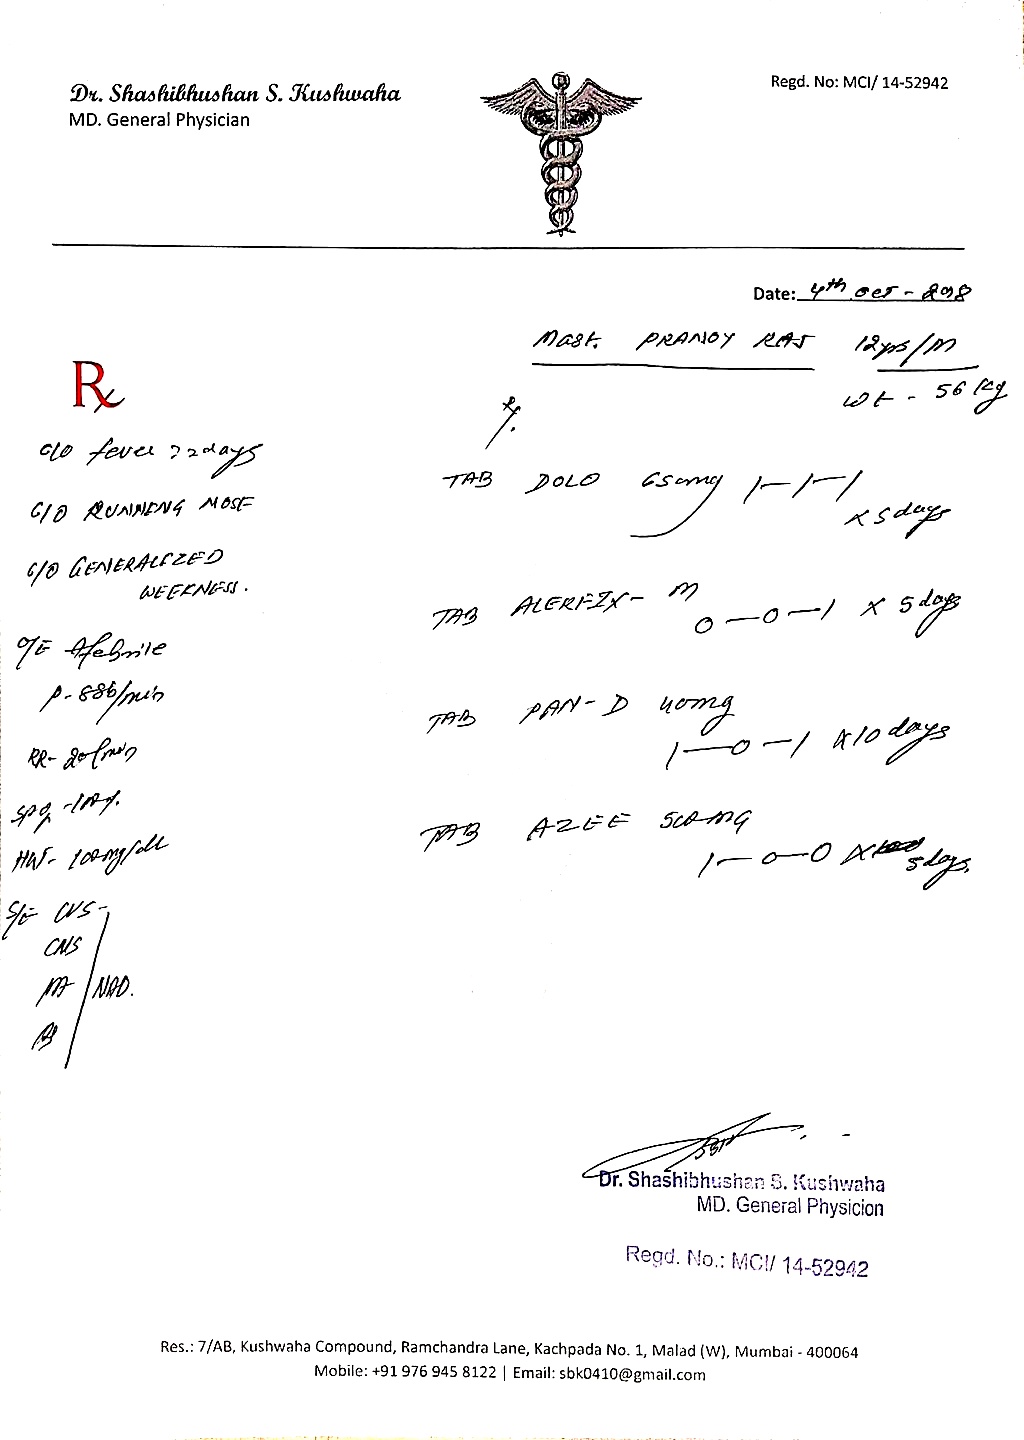 Dr. Shashibhushan S. Kushwaha
MD. General Physician
Regd. No: MCI/ 14-52942
Date: 4th oct - 2018
Mast. PRANOY RAJ 12yrs/M
Wt - 56 Kg
Rx
C/O fever >2days
C/O RUNNING NOSE
C/O GENERALIZED
WEEKNESS.
O/E Afebrile
P- 88b/min
RR- 20/min
SPO2 -100%
- 100mg/dl
S/E CVS-
CNS
NAD.
TAB DOLO 650mg 1—1—1
x 5days
TAB ALERFIX- M
0—0—1 x 5days
TAB PAN-D 40mg
1—0—1 x10days
TAB AZEE 500mg
1—0—0 x 5days.
Dr. Shashibhushan S. Kushwaha
MD. General Physicion
Regd. No.: MCI/ 14-52942
Res.: 7/AB, Kushwaha Compound, Ramchandra Lane, Kachpada No. 1, Malad (W), Mumbai - 400064
Mobile: +91 976 945 8122 | Email: sbk0410@gmail.com